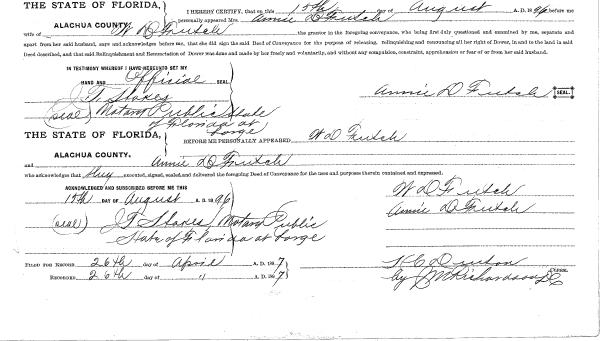 THE STATE OF FLORIDA, I HEREBY CERTIFY, that on this 15th day of August A. D. 1896 before me
ALACHUA COUNTY. personally appeared Mrs. Annie D Futch
wife of W D Futch the grantor in the foregoing conveyance, who being first duly questioned and examined by me, separate and
apart from her said husband, says and acknowledges before me, that she did sign the said Deed of Conveyance for the purpose of releasing, relinquishing and renouncing all her right of Dower, in and to the land in said
Deed described, and that said Relinquishment and Renunciation of Dower was done and made by her freely and voluntarily, and without any compulsion, constraint, apprehension or fear of or from her said husband.
IN TESTIMONY WHEREOF I HAVE HEREUNTO SET MY
HAND AND Official SEAL
Annie D Futch SEAL.
J. F. Stokes
(seal) Notary Public State
of Florida at
Large
THE STATE OF FLORIDA, BEFORE ME PERSONALLY APPEARED W D Futch
ALACHUA COUNTY.
and Annie D Futch
who acknowledges that they executed, signed, sealed, and delivered the foregoing Deed of Conveyance for the uses and purposes therein contained and expressed.
ACKNOWLEDGED AND SUBSCRIBED BEFORE ME THIS
15th DAY OF August A. D. 1896
W D Futch
Annie D Futch
(seal) J F Stokes Notary Public
State of Florida at Large
FILED FOR RECORD 26th day of April A. D. 1897
H C Denton CLERK.
RECORDED 26th day of " A. D. 1897
by J M Richardson D C